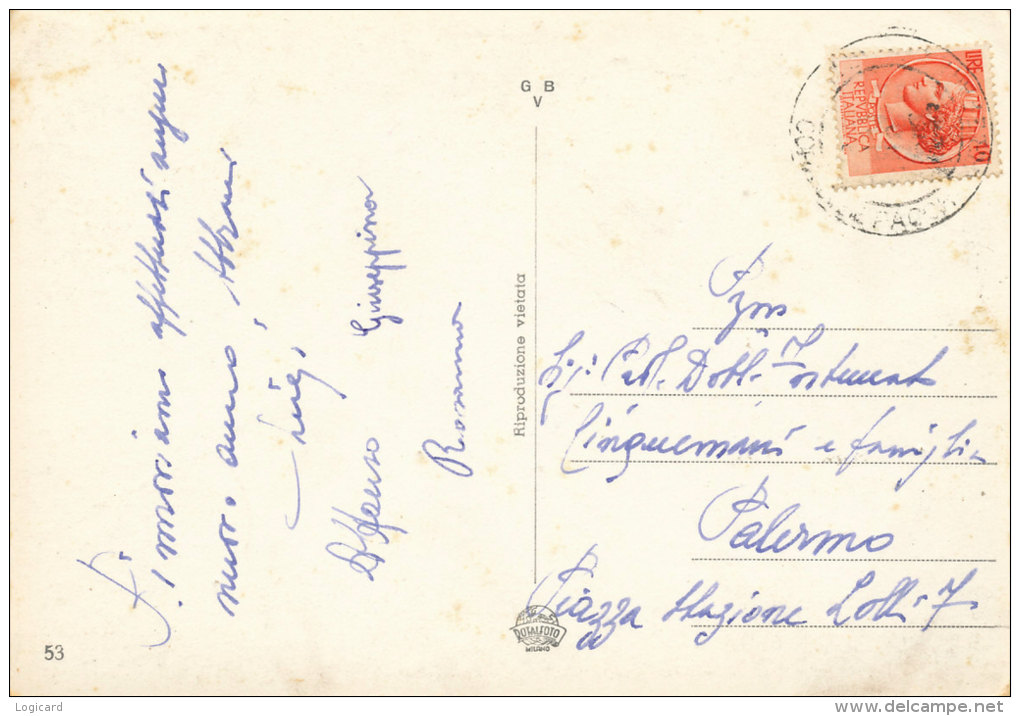 Vi inviamo affettuosi auguri
nuovo anno, Abbracci
Luigi,
Alfonso Giuseppina
Rosanna
53
G B
V
Riproduzione vietata
ROTALFOTO
MILANO
LIRE 10
POSTE
REPVBBLICA
ITALIANA
Sig. Cav. Dott.
Cinquemani e famiglia
Palermo
Piazza Stazione Lolli 7
Logicard
www.delcampe.net